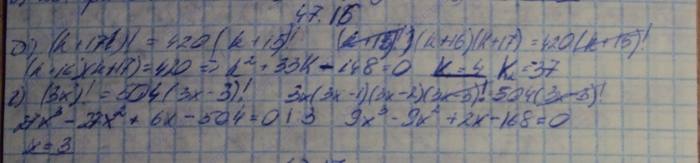 47.16
б) (k+17)! = 420(k+15)! (k+15)!(k+16)(k+17) = 420(k+15)!
(k+16)(k+17)=420 => k² + 33k - 148=0 k=4 k₂=37
г) (3x)! = 504(3x-3)! 3x(3x-1)(3x-2)(3x-3)! = 504(3x-3)!
27x³ - 27x² + 6x - 504 = 0 | 3 9x³ - 9x² + 2x - 168 = 0
x = 3